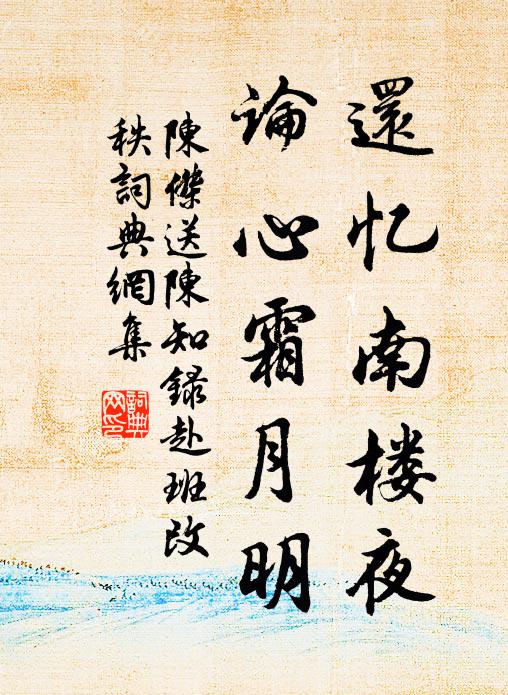 還忆南楼夜
論心霜月明
陳傑送陳知録赴班改
秩詞典網集
詞典
网印